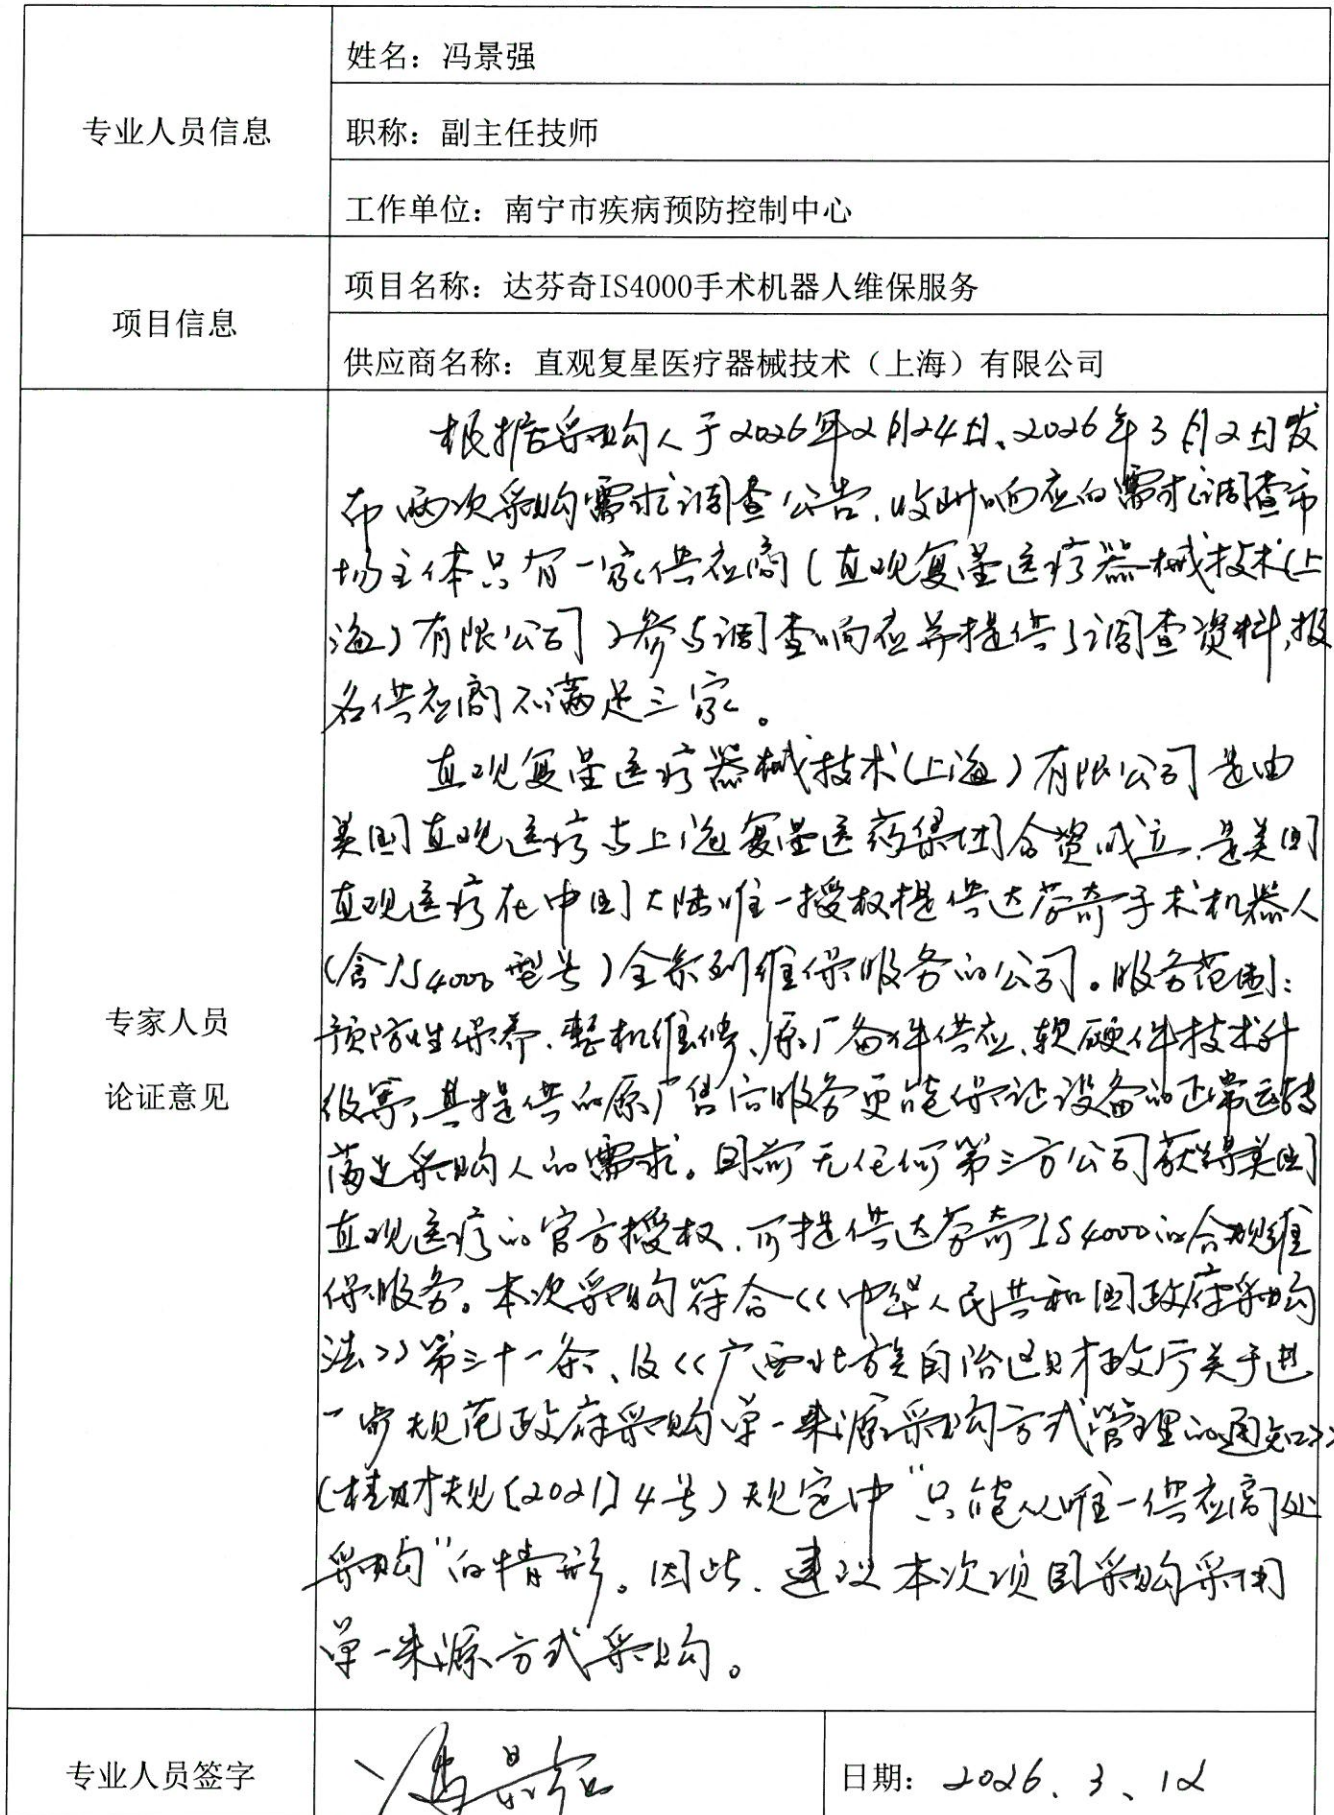 姓名：冯景强
专业人员信息
职称：副主任技师
工作单位：南宁市疾病预防控制中心
项目信息
项目名称：达芬奇IS4000手术机器人维保服务
供应商名称：直观复星医疗器械技术（上海）有限公司
专家人员
论证意见
根据采购人于2026年2月24日、2026年3月2日发
布两次采购需求调查公告，收到响应的需求调查市
场主体只有一家供应商（直观复星医疗器械技术（上
海）有限公司）参与调查响应并提供了调查资料，报
名供应商不满足三家。
直观复星医疗器械技术（上海）有限公司是由
美国直观医疗与上海复星医药集团合资成立，是美国
直观医疗在中国大陆唯一授权提供达芬奇手术机器人
（含IS4000型号）全系列维保服务的公司。服务范围：
预防性保养、整机维修、原厂备件供应、软硬件技术升
级等，其提供的原厂售后服务更能保证设备的正常运转
满足采购人的需求。目前无任何第三方公司获得美国
直观医疗的官方授权，可提供达芬奇IS4000的合规维
保服务。本次采购符合《中华人民共和国政府采购
法》第三十一条、及《广西壮族自治区财政厅关于进
一步规范政府采购单一来源采购方式管理的通知》
（桂财规〔2021〕4号）规定中“只能从唯一供应商处
采购”的情形。因此，建议本次项目采购采用
单一来源方式采购。
专业人员签字
冯景强
日期：2026.3.12